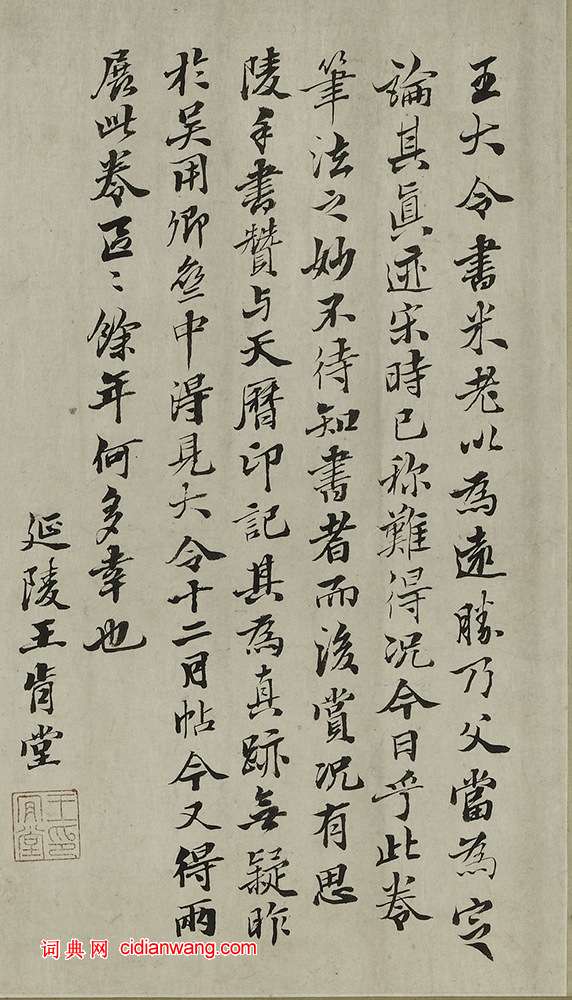 王大令書米老以為遠勝乃父當為定
論其眞迹宋時已称難得况今日乎此卷
筆法之妙不待知書者而後賞况有思
陵手書贊与天曆印記其為真跡無疑昨
於吴用卿處中得見大令十二月帖今又得兩
展此卷區〻餘年何多幸也
延陵王肯堂
王肯堂印
词典网 cidianwang.com